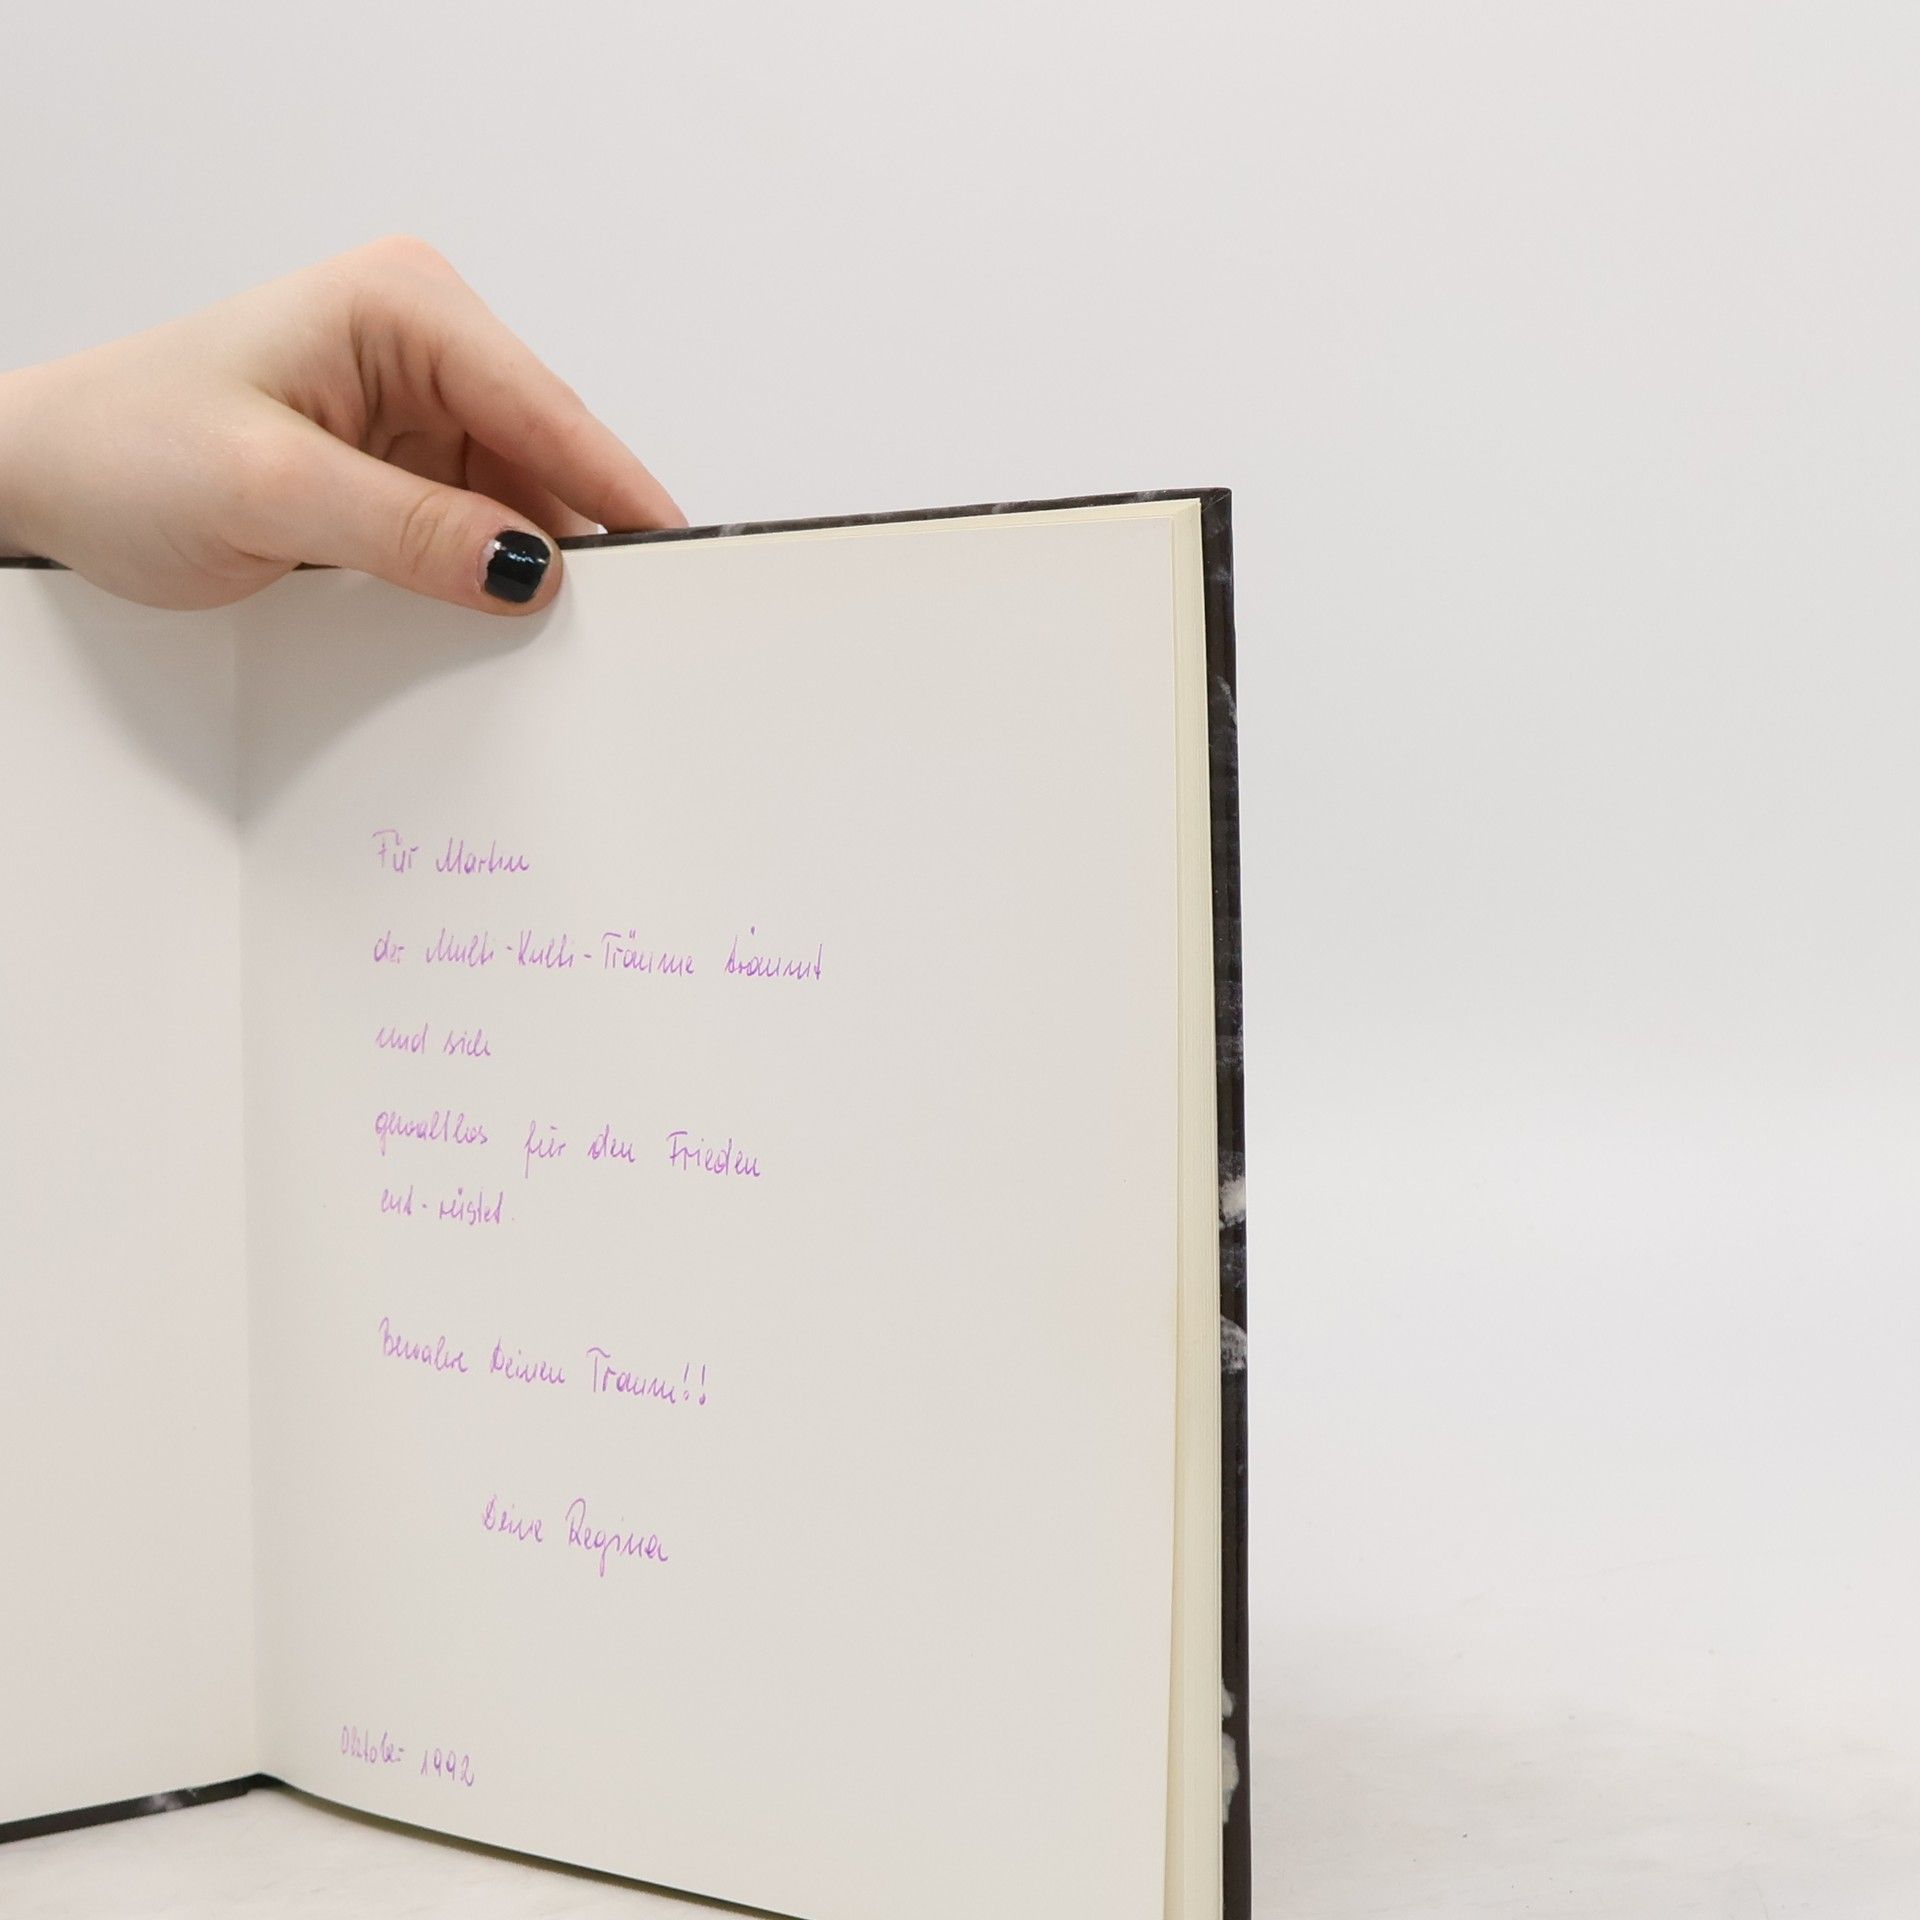 Für Martin
der Multi-Kulti-Träume träumt
und sich
gewaltlos für den Frieden
ent-rüstet.
Bewahre Deinen Traum!!
Deine Regina
Oktober 1992